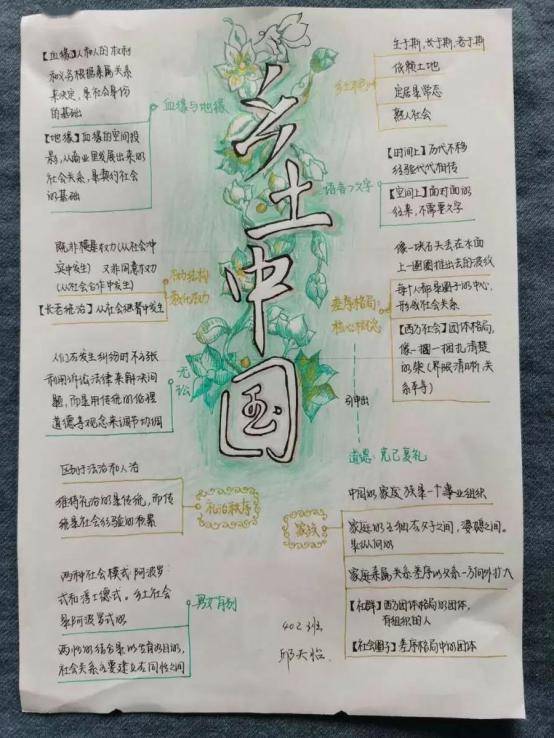 乡土中国
【血缘】人和人的权利
和义务根据亲属关系
来决定，是社会身份
的基础
【地缘】血缘的空间投
影，从商业里发展出来的
社会关系，是契约社会
的基础
血缘与地缘
既非横暴权力(从社会冲
突中发生) 又非同意权力
(从社会合作中发生)
【长老统治】从社会继替中发生
教化权力
人们万发生纠纷时不主张
利用诉讼法律来解决问
题，而是用传统的伦理
道德等观念来调节协调
无讼
区别于法治和人治
维持礼治的是传统，而传
统是社会经验的积累
礼治秩序
两种社会模式：阿波罗
式和浮士德式。乡土社会
是阿波罗式的
两性的结合是以生育为目的，
社会关系主要建立在同性之间
男女有别
生于斯，长于斯，老于斯
依赖土地
定居是常态
熟人社会
乡土本色
【时间上】历代不移
经验代代相传
【空间上】面对面的
往来，不需要文字
语言>文字
像一块石头丢在水面
上一圈圈推出去的波纹
每个人都是圈子的中心，
形成社会关系
【西方社会】团体格局，
像一捆一捆扎清楚
的柴(界限清晰，关
系平等)
差序格局：
核心概念
引申出
道德 克己复礼
中国的家是一个事业组织
家庭的主轴在父子之间，婆媳之间。
是纵向的
家庭亲属关系差序的父系一方向外扩大
【社群】西方团体格局的团体，
有组织的人
【社会圈子】差序格局中的团体
家族
402班
邱天怡